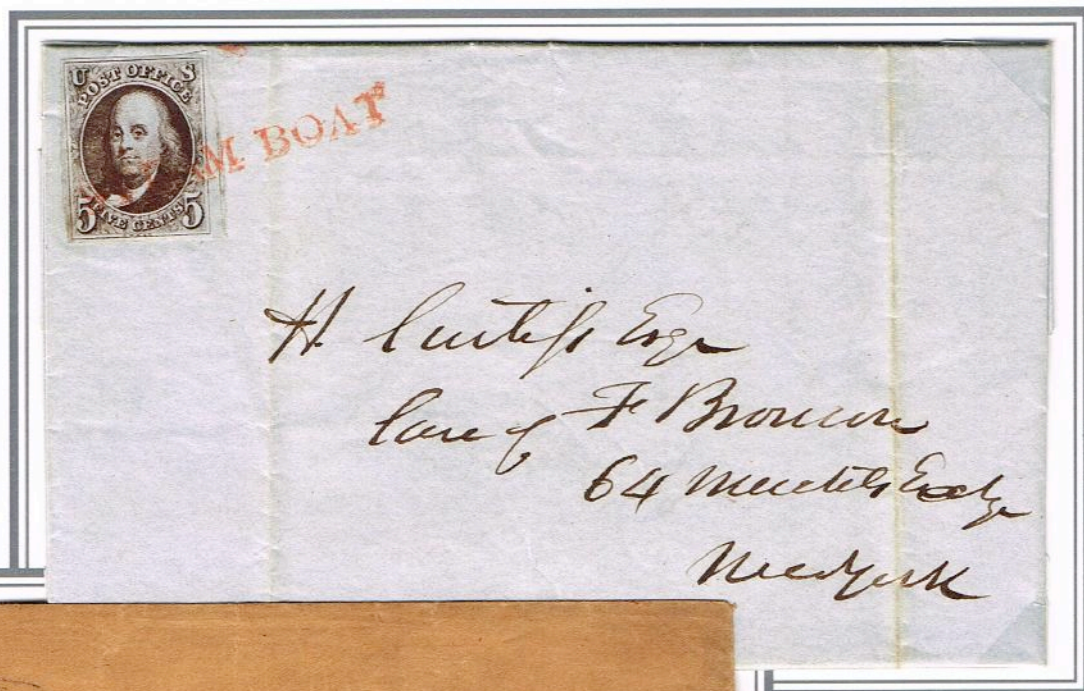 U S
POST OFFICE
5 FIVE CENTS 5
AM BOAT
H Curtiss Esqr
Care of F Bronson
64 Merchts Exchg
New York